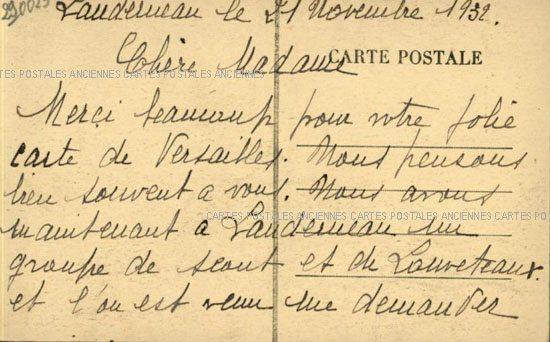 290023
Landerneau le 21 Novembre 1932.
Chère Madame
CARTE POSTALE
CARTES POSTALES ANCIENNES CARTES POSTALES ANCIENNES CARTES POSTALES ANCIENNES CARTES POSTALES
Merci beaucoup pour votre jolie
carte de Versailles. Nous pensons
bien souvent a vous. Nous avons
CARTES POSTALES ANCIENNES CARTES POSTALES ANCIENNES CARTES POSTALES ANCIENNES CARTES POS
maintenant a Landerneau un
groupe de scout et de Louveteaux.
et l'on est venu me demander